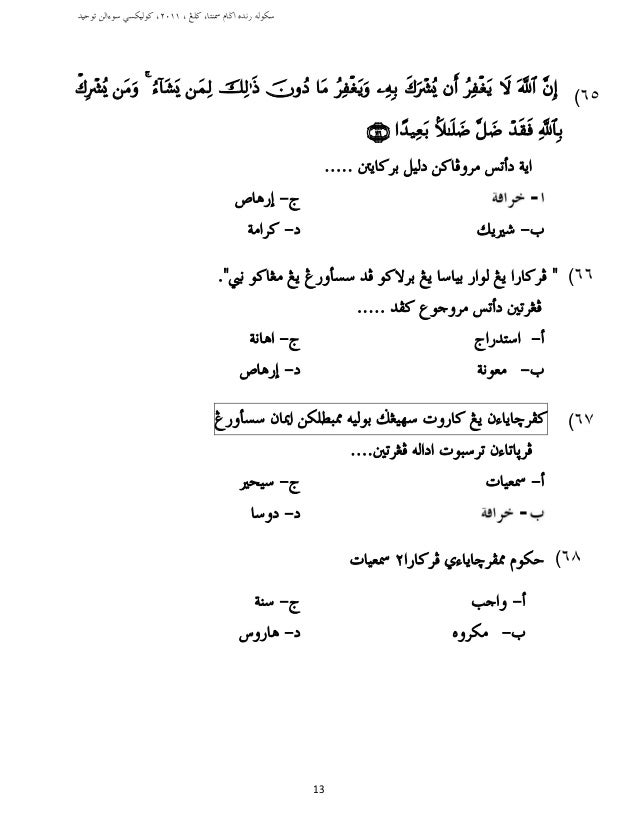 سكوله رنده اڬام سمنتا، كلڠ ، ٢٠١١، كوليكسي سوءالن توحيد
٦٥) إِنَّ ٱللَّهَ لَا يَغْفِرُ أَن يُشْرَكَ بِهِۦ وَيَغْفِرُ مَا دُونَ ذَٰلِكَ لِمَن يَشَآءُ ۚ وَمَن يُشْرِكْ
بِٱللَّهِ فَقَدْ ضَلَّ ضَلَٰلًۢا بَعِيدًا ﴿١١٦﴾
اية دأتس مروڤاكن دليل بركايتن .....
ا- خرافة ج- إرهاص
ب- شيريك د- كرامة
٦٦) " ڤركارا يڠ لوار بياسا يڠ برلاكو ڤد سسأورڠ يڠ مڠاكو نبي".
ڤڠرتين دأتس مروجوع كڤد .....
أ- استدراج ج- اهانة
ب- معونة د- إرهاص
٦٧) كڤرچاياءن يڠ كاروت سهيڠݢ بوليه ممبطلكن ايمان سسأورڠ
ڤرڽاتاءن ترسبوت اداله ڤڠرتين....
أ- سمعيات ج- سيحير
ب- خرافة د- دوسا
٦٨) حكوم ممڤرچاياءي ڤركارا٢ سمعيات
أ- واجب ج- سنة
ب- مكروه د- هاروس
13